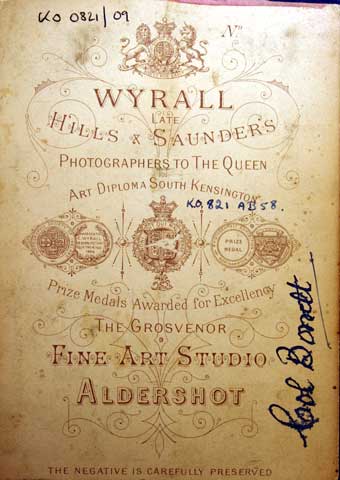 KO 0821/09
No
WYRALL
LATE
HILLS & SAUNDERS
PHOTOGRAPHERS TO THE QUEEN
ART DIPLOMA SOUTH KENSINGTON
KO.821 AB58.
PRIZE
MEDAL
Prize Medals Awarded for Excellency
THE GROSVENOR
FINE ART STUDIO
ALDERSHOT
THE NEGATIVE IS CAREFULLY PRESERVED